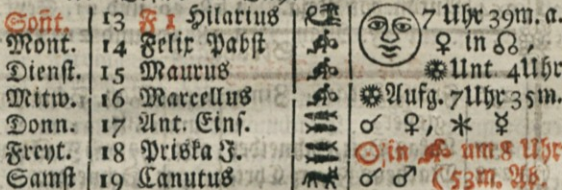 Soñt. 13 F 1 Hilarius 7 Uhr 39m. a.
Mont. 14 Felix Pabst ♀ in ☊,
Dienst. 15 Maurus Unt. 4Uhr
Mitw. 16 Marcellus Aufg. 7Uhr 35m.
Donn. 17 Ant. Eins. ☌ ♀, ⚹ ☿
Freyt. 18 Priska J. ☉ in ♒ um 8 Uhr
Samst 19 Canutus ☌ ♂ (53m. Ab.